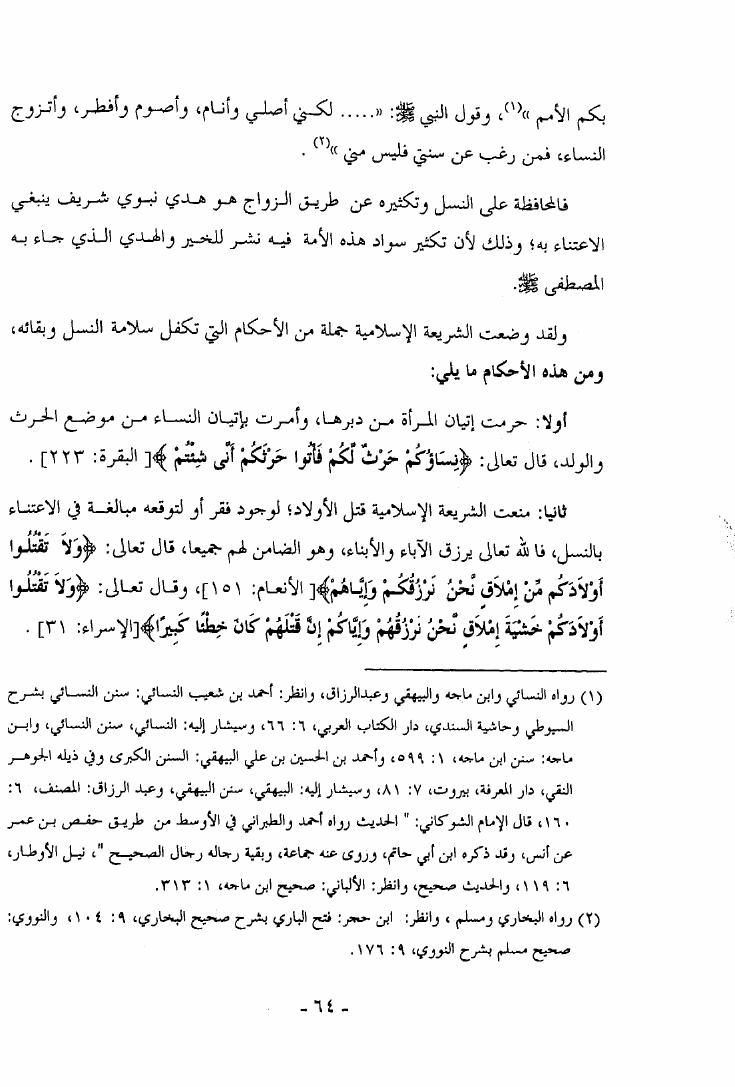 بكم الأمم »(١)، وقول النبي ﷺ: «..... لكني أصلي وأنام، وأصوم وأفطر، وأتزوج
النساء، فمن رغب عن سنتي فليس مني »(٢) .
فالمحافظة على النسل وتكثيره عن طريق الزواج هو هدي نبوي شريف ينبغي
الاعتناء به؛ وذلك لأن تكثير سواد هذه الأمة فيه نشر للخير والهدي الذي جاء به
المصطفى ﷺ.
ولقد وضعت الشريعة الإسلامية جملة من الأحكام التي تكفل سلامة النسل وبقائه،
ومن هذه الأحكام ما يلي:
أولا: حرمت إتيان المرأة من دبرها، وأمرت بإتيان النساء من موضع الحرث
والولد، قال تعالى: ﴿نِسَاؤُكُمْ حَرْثٌ لَّكُمْ فَأْتُوا حَرْثَكُمْ أَنَّى شِئْتُمْ ﴾[ البقرة: ٢٢٣] .
ثانيا: منعت الشريعة الإسلامية قتل الأولاد؛ لوجود فقر أو لتوقعه مبالغة في الاعتناء
بالنسل، فالله تعالى يرزق الآباء والأبناء، وهو الضامن لهم جميعا، قال تعالى: ﴿وَلاَ تَقْتُلُوا
أَوْلاَدَكُم مِّنْ إِمْلاَقٍ نَّحْنُ نَرْزُقُكُمْ وَإِيَّاهُمْ﴾[ الأنعام: ١٥١]، وقال تعالى: ﴿وَلاَ تَقْتُلُوا
أَوْلاَدَكُمْ خَشْيَةَ إِمْلاَقٍ نَّحْنُ نَرْزُقُهُمْ وَإِيَّاكُمْ إِنَّ قَتْلَهُمْ كَانَ خِطْئًا كَبِيرًا﴾[الإسراء: ٣١] .
(١) رواه النسائي وابن ماجه والبيهقي وعبدالرزاق، وانظر: أحمد بن شعيب النسائي: سنن النسائي بشرح
السيوطي وحاشية السندي، دار الكتاب العربي، ٦: ٦٦، وسيشار إليه: النسائي، سنن النسائي، وابن
ماجه: سنن ابن ماجه، ١: ٥٩٩، وأحمد بن الحسين بن علي البيهقي: السنن الكبرى وفي ذيله الجوهر
النقي، دار المعرفة، بيروت، ٧: ٨١، وسيشار إليه: البيهقي، سنن البيهقي، وعبد الرزاق: المصنف، ٦:
١٦٠، قال الإمام الشوكاني: " الحديث رواه أحمد والطبراني في الأوسط من طريق حفص بن عمر
عن أنس، وقد ذكره ابن أبي حاتم، وروى عنه جماعة، وبقية رجاله رجال الصحيح "، نيل الأوطار،
٦: ١١٩، والحديث صحيح، وانظر: الألباني: صحيح ابن ماجه، ١: ٣١٣.
(٢) رواه البخاري ومسلم ، وانظر: ابن حجر: فتح الباري بشرح صحيح البخاري، ٩: ١٠٤، والنووي:
صحيح مسلم بشرح النووي، ٩: ١٧٦.
- ٦٤ -